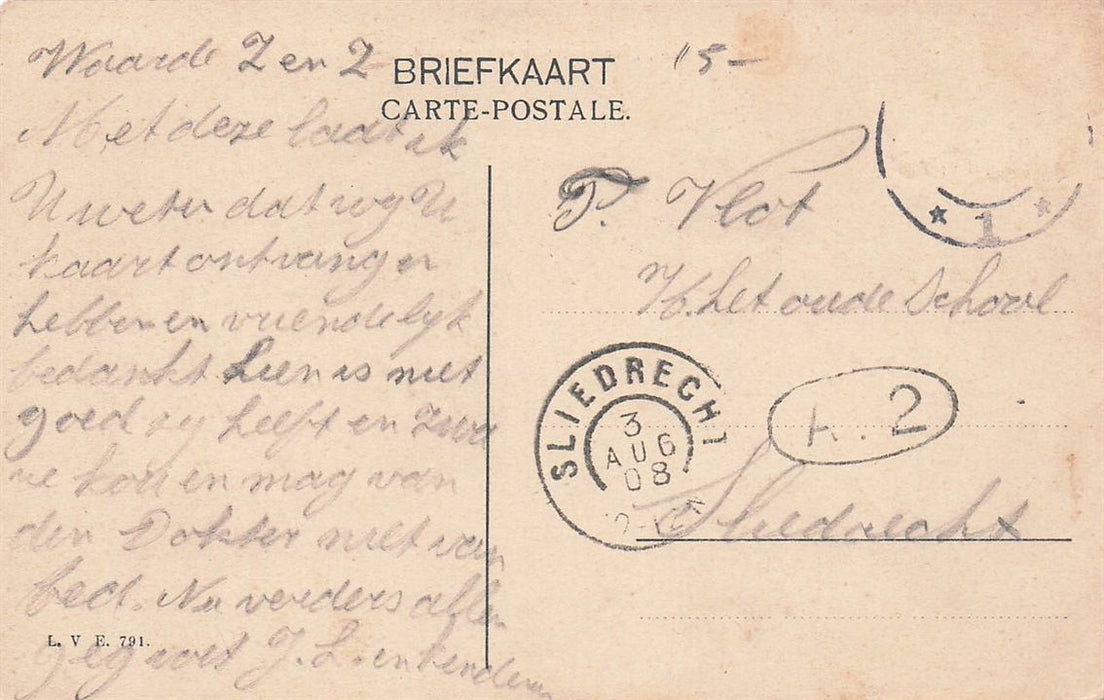 Waarde Z en Z
BRIEFKAART
15-
CARTE-POSTALE.
Met deze laat ik
U weten dat wy U
kaart ontvangen
hebben en vriendelyk
bedankt Lien is niet
goed zy heeft en zwa
re kou en mag van
den Dokter niet van
bed. Nu verders allen
gegroet J. L. en kenderen
L. V E. 791.
P. Vlot
h het oude School
Sliedrecht
1
SLIEDRECHT
3
AUG
08
K. 2